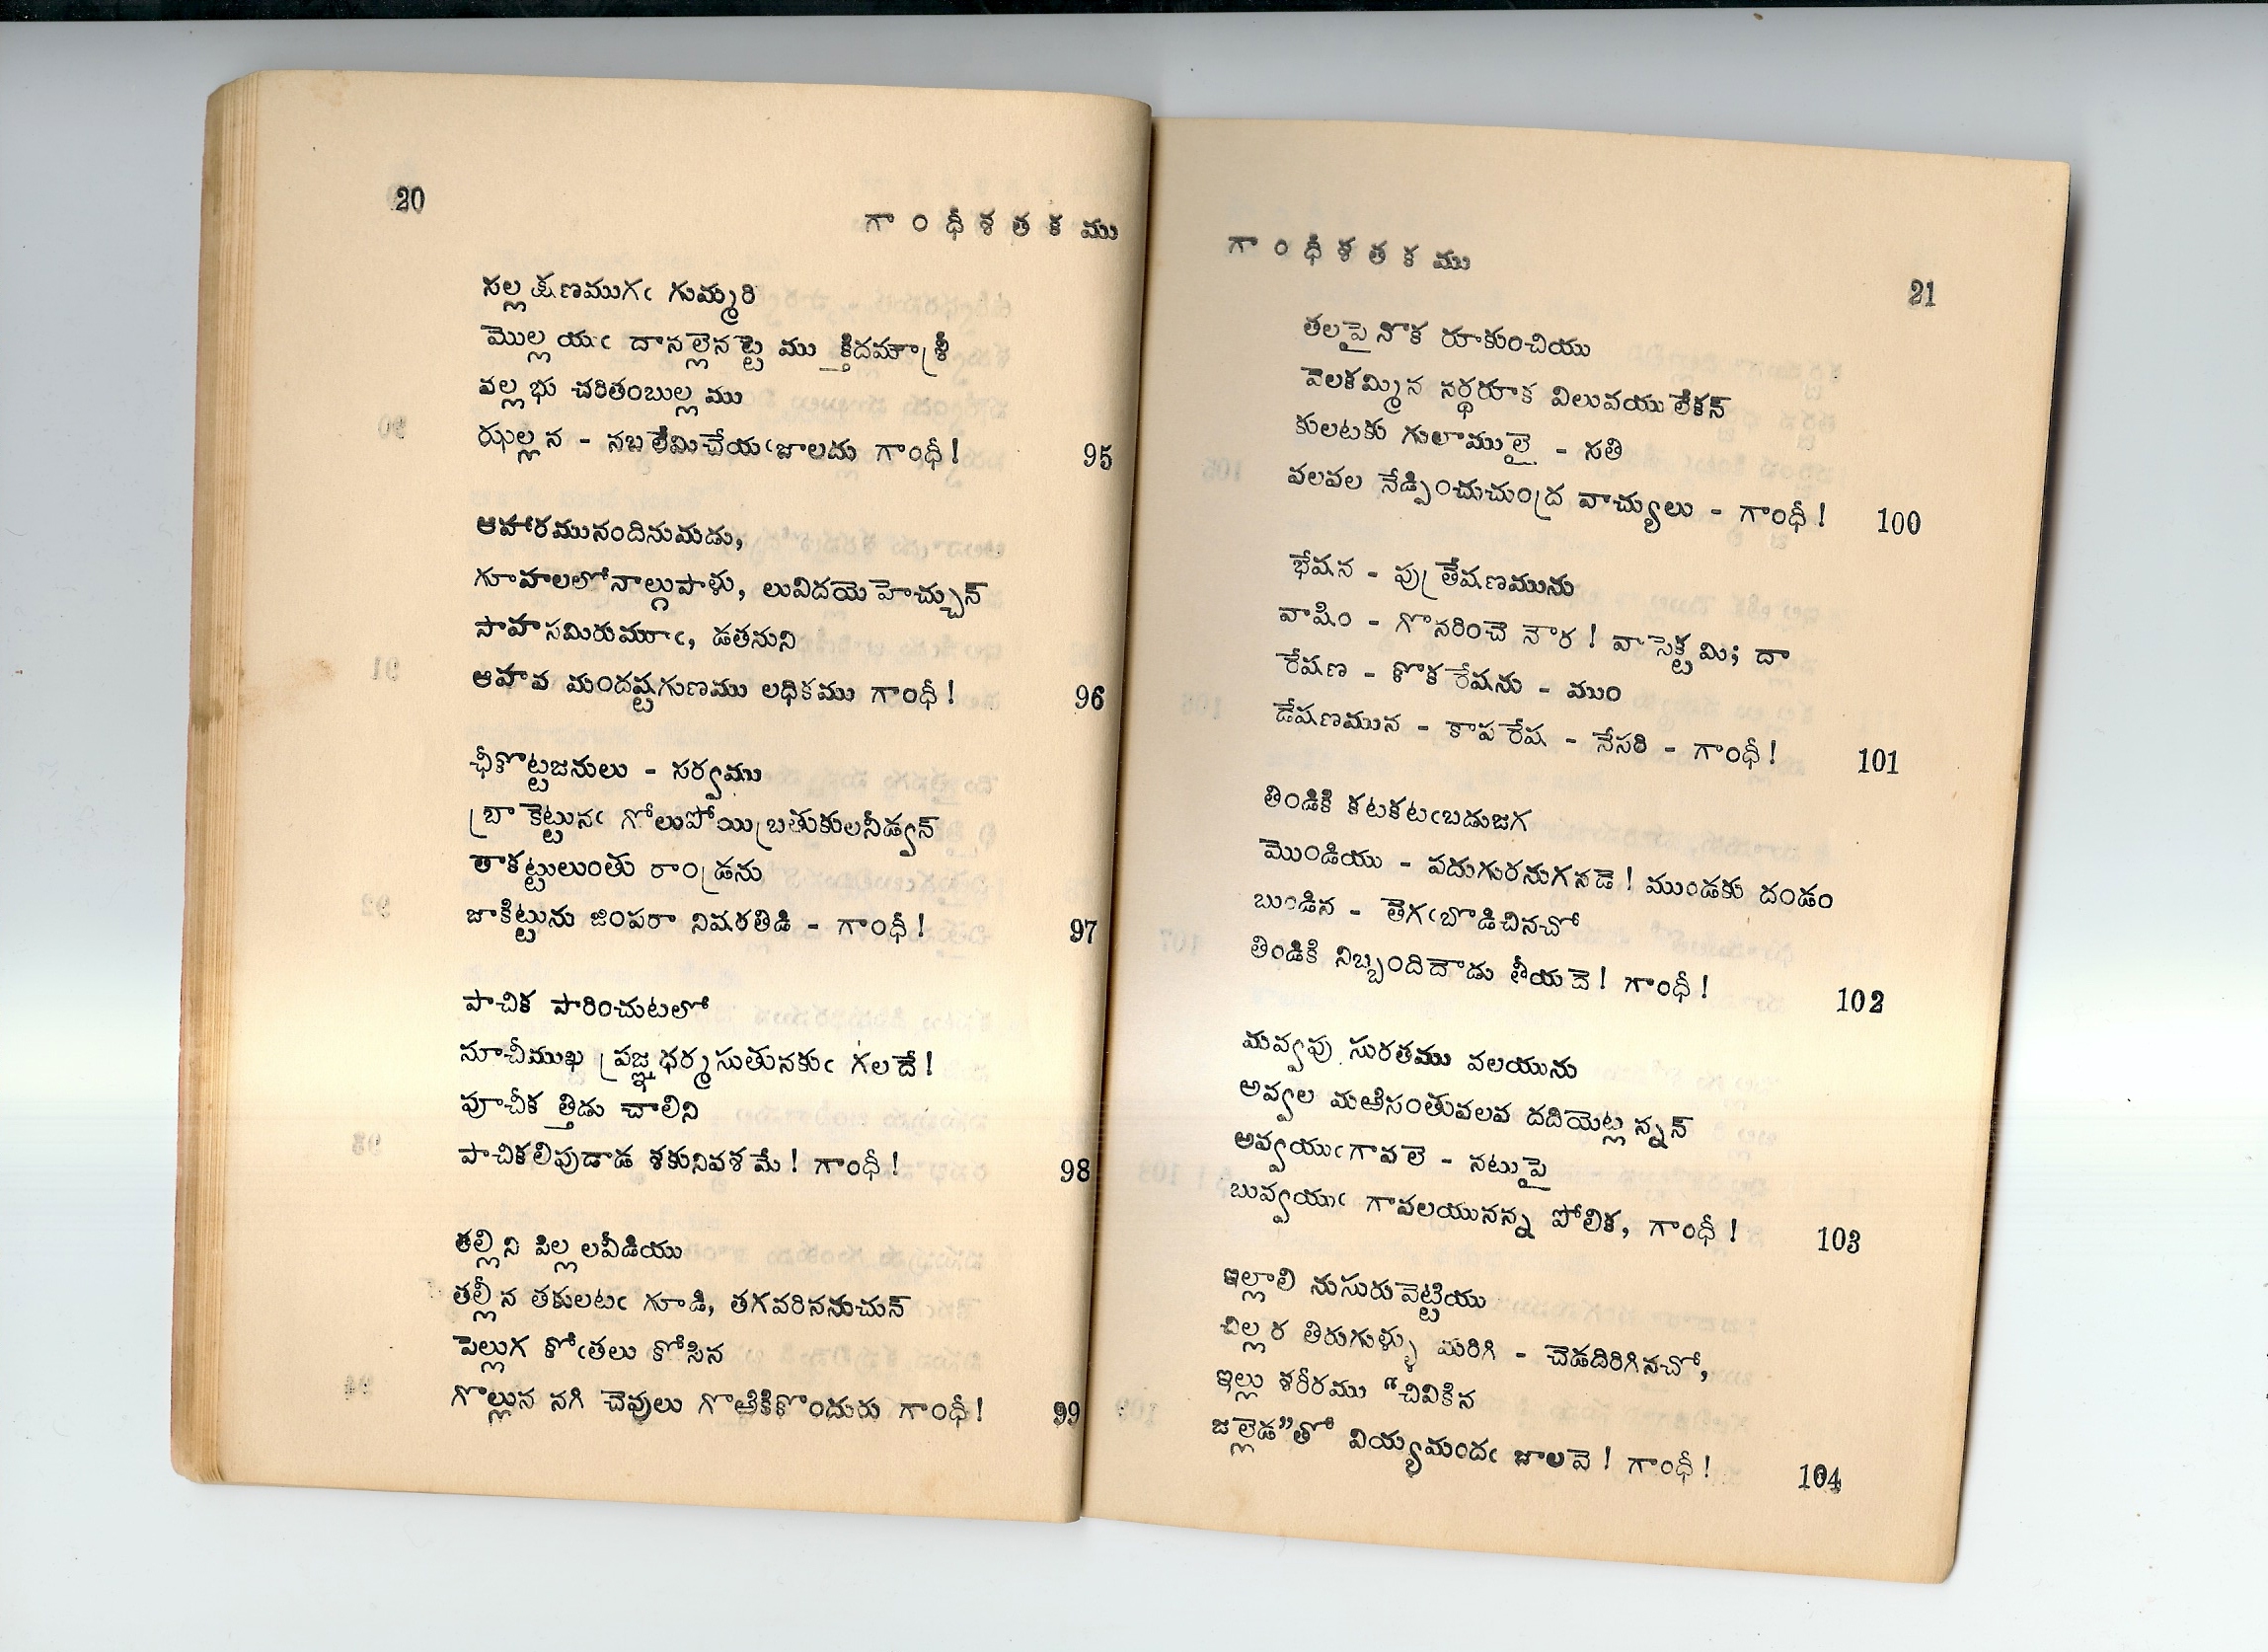 20
గాంధీశతకము
సల్లక్షణముగఁ గుమ్మరి
మొల్లయఁ దానల్లెనట్టి ముక్తిదమౌశ్రీ
వల్లభు చరితంబుల్లము
ఝల్లన - నబలేమిచేయఁజాలదు గాంధీ! 95
ఆహారమునందినుమడు,
గూహలలోనాల్గుపాళు, లువిదయెహెచ్చున్
సాహసమిరుమూఁ, డతనుని
ఆహవ మందష్టగుణము లధికము గాంధీ! 96
ఛీకొట్టజనులు - సర్వము
బ్రాకెట్టునఁ గోలుపోయిబ్రతుకులనీడ్వన్
తాకట్టులుంతు రాండ్రను
జూకిట్టును జింపరా నిషరతిడి - గాంధీ! 97
పాచిక పారించుటలో
సూచీముఖ ప్రజ్ఞధర్మసుతునకుఁ గలదే!
పూచీక త్తిడు చాలిని
పాచికలిపుడాడ శకునివశమే! గాంధీ! 98
తల్లిని పిల్లలవీడియు
తల్లీన తకులటఁ గూడి, తగవరిననుచున్
పెల్లుగ కోఁతలు కోసిన
గొల్లున నగి చెవులు గొఱికికొందురు గాంధీ! 99
గాంధీశతకము
21
తలపై నొక రూకుంచియు
వెలకమ్మిన నర్థరూక విలువయులేకన్
కులటకు గులాములై - సతి
వలవల నేడ్పించుచుంద్ర వాచ్యులు - గాంధీ! 100
భేషన - పుత్రేషణమును
వాషిం - గొనరించె నౌర! వాసెక్టమి; దా
రేషణ - కొకరేషను - ముం
డేషణమున - కాపరేష - నేసరి - గాంధీ! 101
తిండికి కటకటఁబడుజగ
మొండియు - పదుగురనుగనడె! ముండకు దండం
బుండిన - తెగఁబొడిచినచో
తిండికి నిబ్బందిదాడు తీయదె! గాంధీ! 102
మవ్వపు సురతము వలయును
అవ్వల మఱిసంతువలవ దదియెట్లన్నన్
అవ్వయుఁగావలె - నటుపై
బువ్వయుఁ గావలయునన్న పోలిక, గాంధీ! 103
ఇల్లాలి నుసురువెట్టియు
చిల్లర తిరుగుళ్ళు మరిగి - చెడదిరిగినచో,
ఇల్లు శరీరము "చివికిన
జల్లెడ"తో వియ్యమందఁ జాలవె! గాంధీ! 104